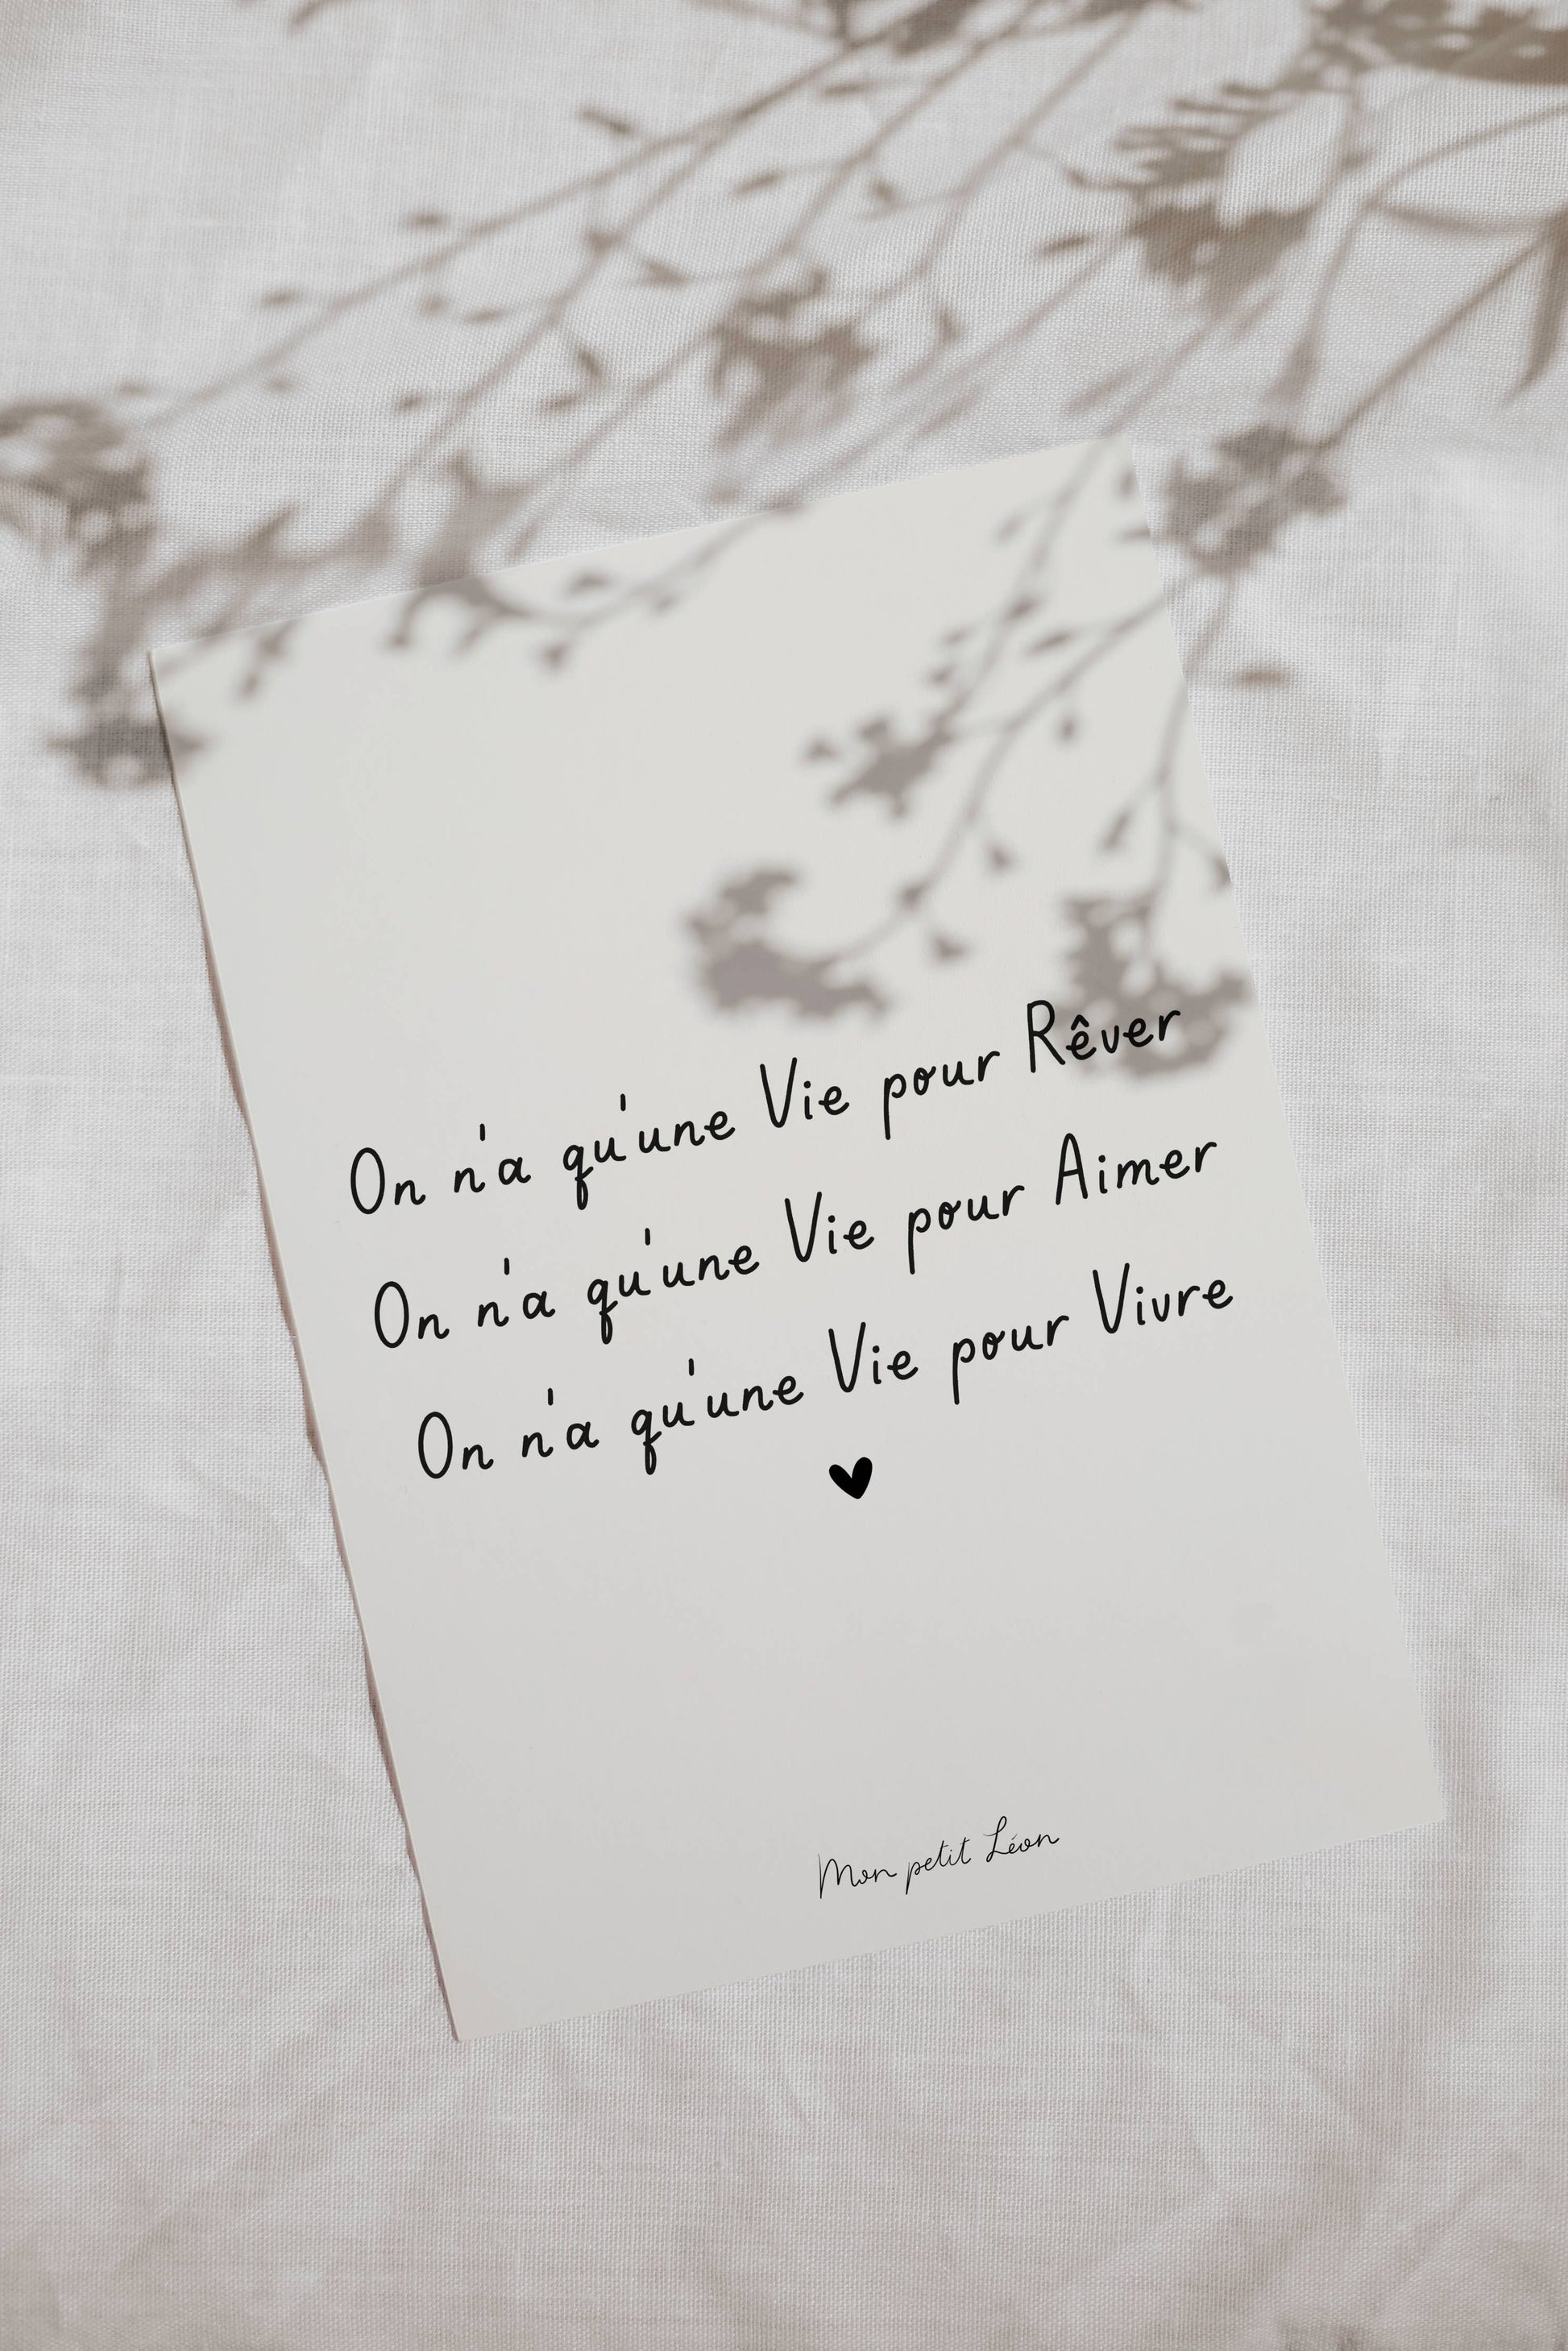 On n'a qu'une Vie pour Rêver
On n'a qu'une Vie pour Aimer
On n'a qu'une Vie pour Vivre
Mon petit Léon